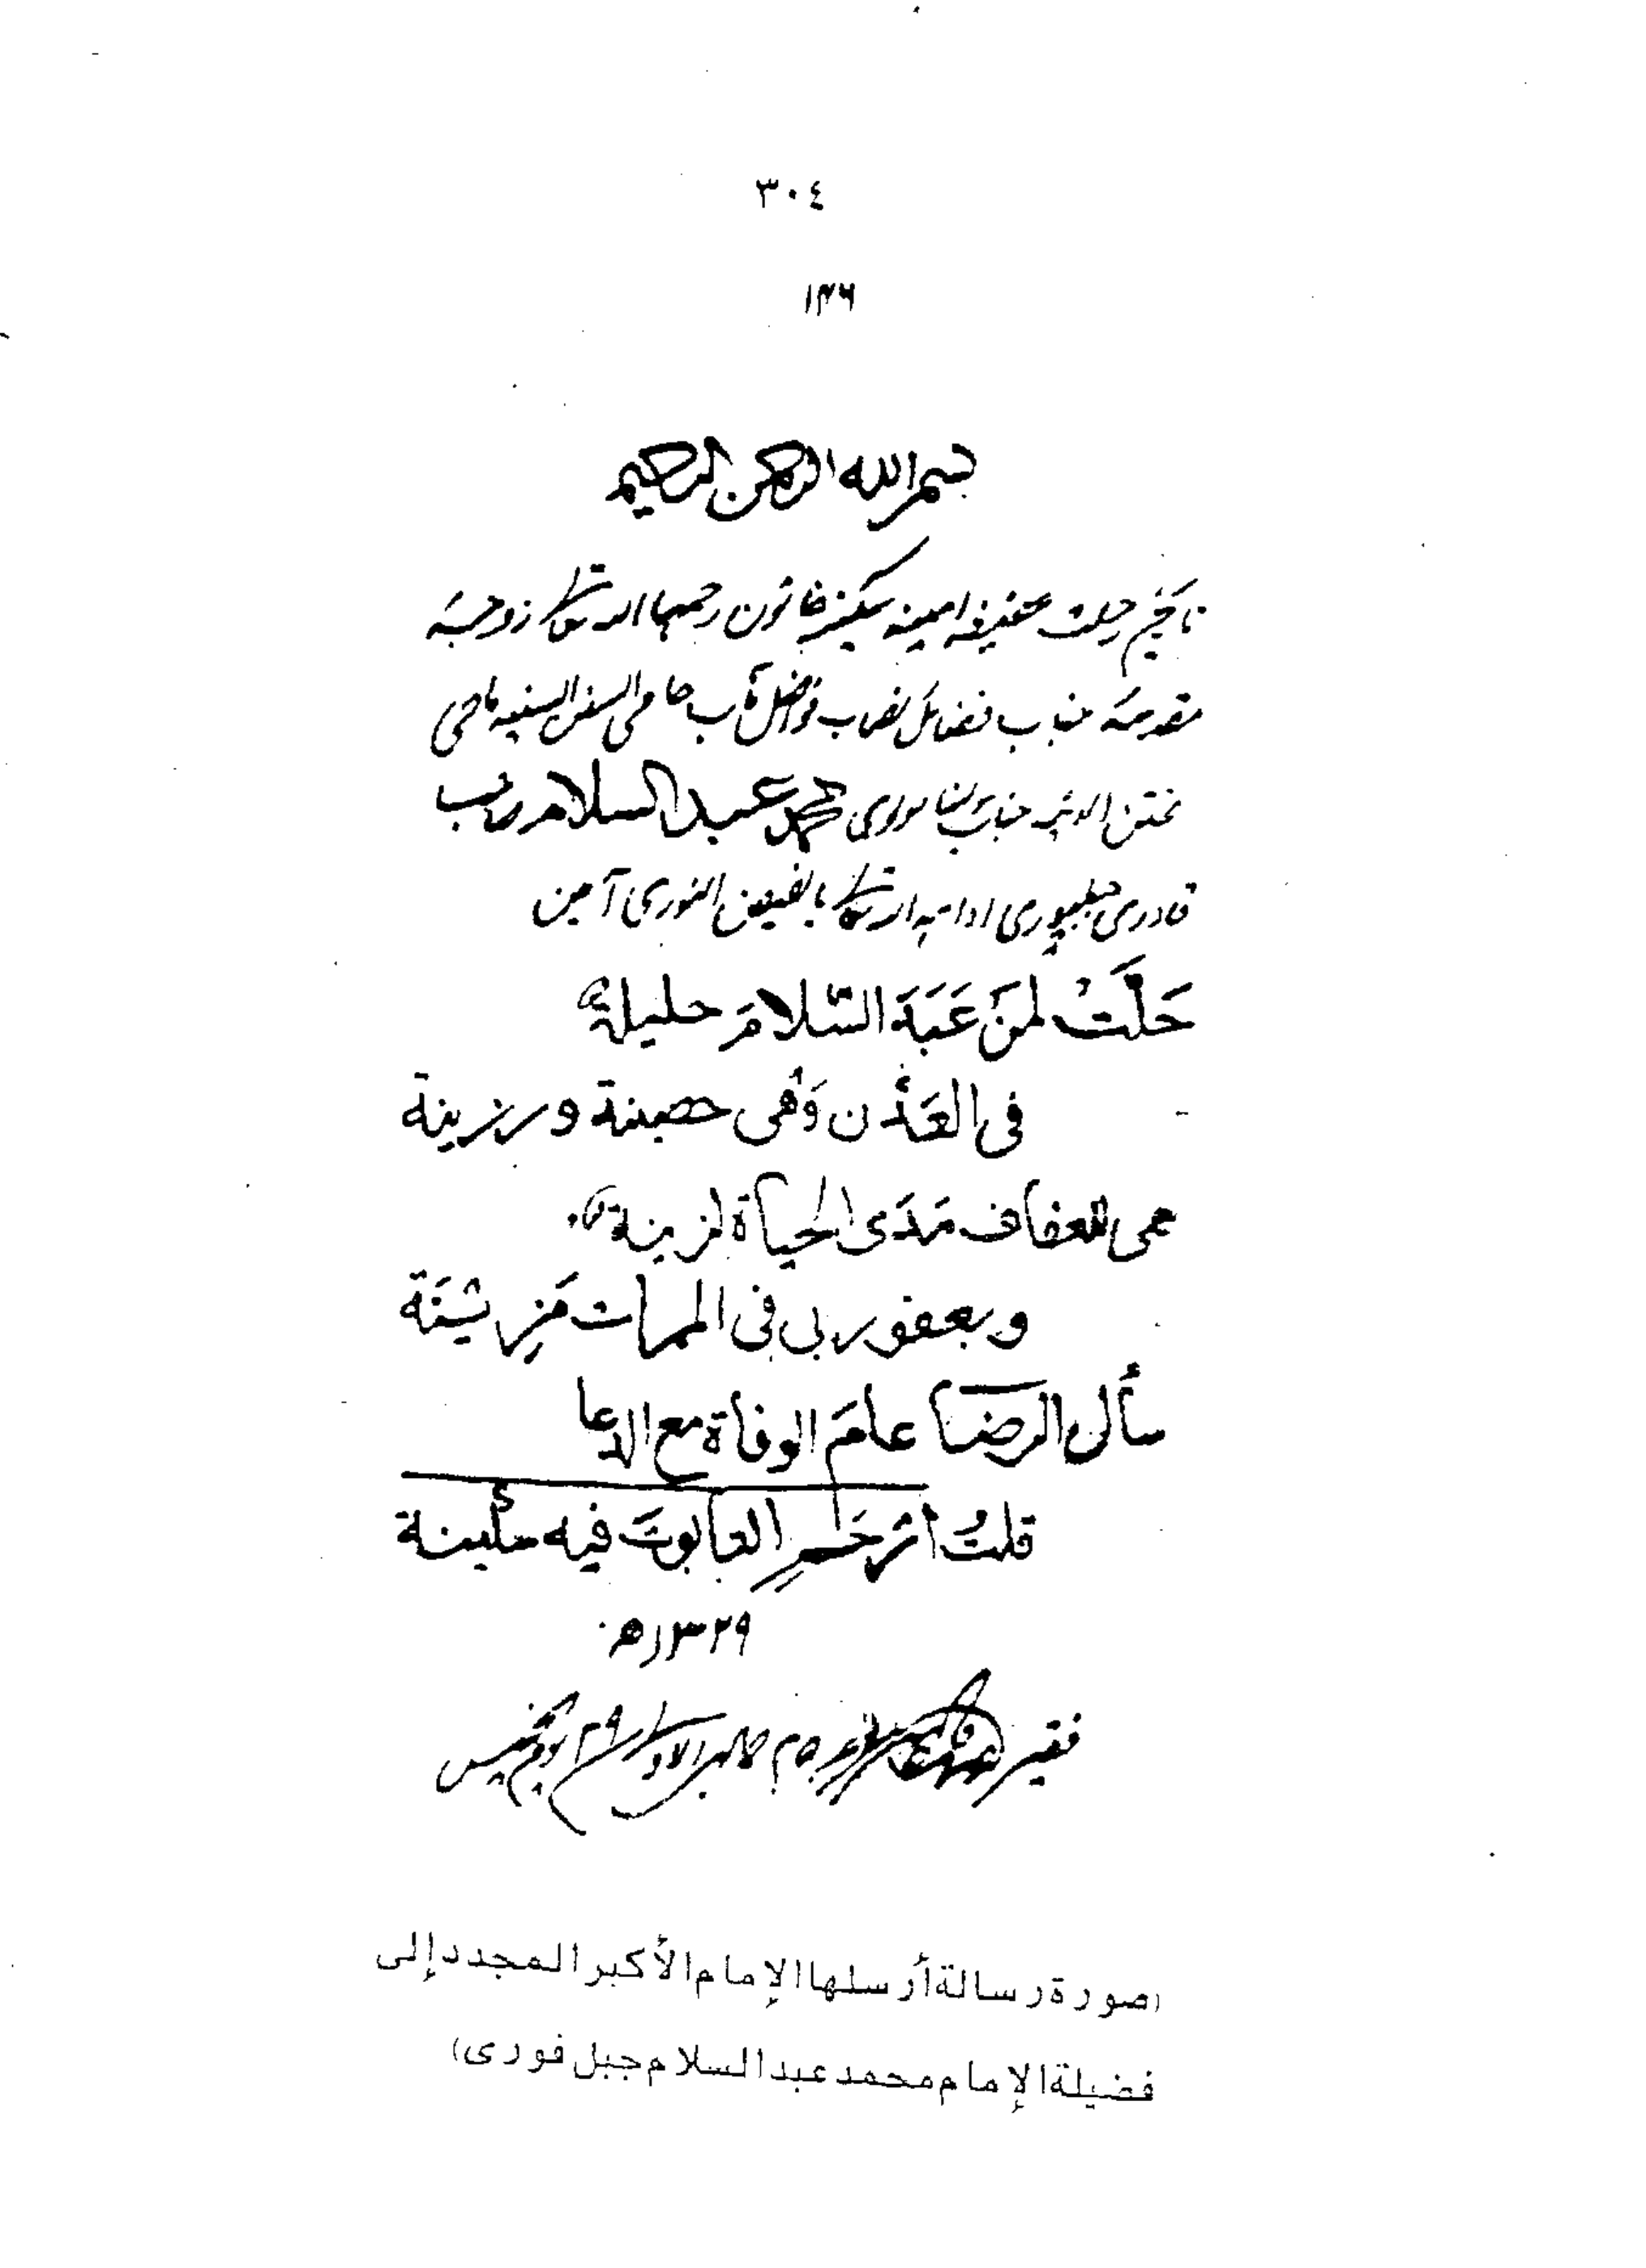 ٣٠٤
١٣٦
بسم الله الرحمن الرحيم
تاریخ رحلت عفیفہ امینہ سکینہ خاتون رحمہا اللہ تعالیٰ زوجہ
مقدسہ جناب فضائل نصاب فواضل مآب حامی السنن السنیہ ماحی
الفتن الدنیہ جناب مولانا مولوی محمد عبد السلام صاحب
قادری جبلپوری ادامہ اللہ تعالیٰ بالفیض النوری آمین
حَلَّتْ لمنْ عَبَدَ السَّلامَ حليلة
فى العَدْن وَهْى حصينة ورزينة
هى للعفاف مَدَى الحياة لزينة
وبعفو ربى فى الممات مَزِينَة
سأل الرضا عامَ الوفاة مع الدعا
قلتُ ارْحَمِ التابوتَ فيه سكينة
١٣٢٩ھ
فقیر
(صورة رسالة أرسلها الإمام الأكبر المجدد إلى
فضيلة الإمام محمد عبد السلام جبل فورى)